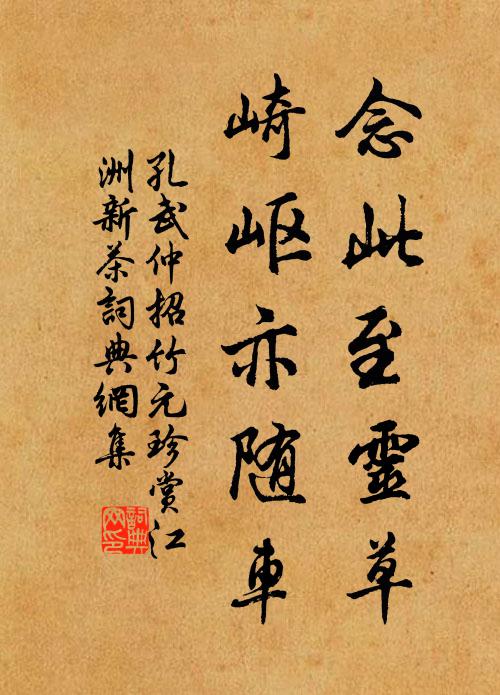 念此至靈草
崎岖亦随車
孔武仲招竹元珍賞江
洲新茶詞典網集
詞典
网印